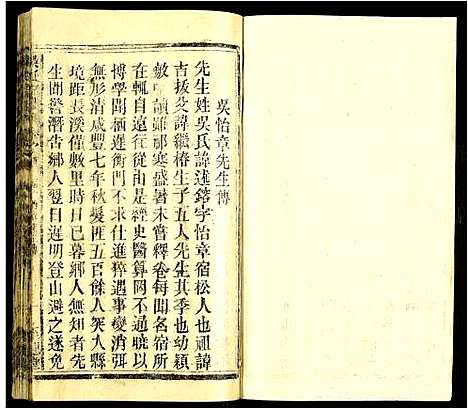 吳怡章先生傳
先生姓吳氏諱述鎔字怡章宿松人也祖諱
吉拔父諱繼椿生子五人先生其季也幼穎
敏 讀雖祁寒盛暑未嘗釋卷每聞名宿所
在輒自遠往從由是經史醫算罔不通曉以
博學聞栖遲衡門不求仕進猝遇事變消弭
無形清咸豐七年秋髮匪五百餘人突入縣
境距長溪僅數里時日已暮鄉人無知者先
生聞警潛告鄉人翌日遲明登山避之遂免